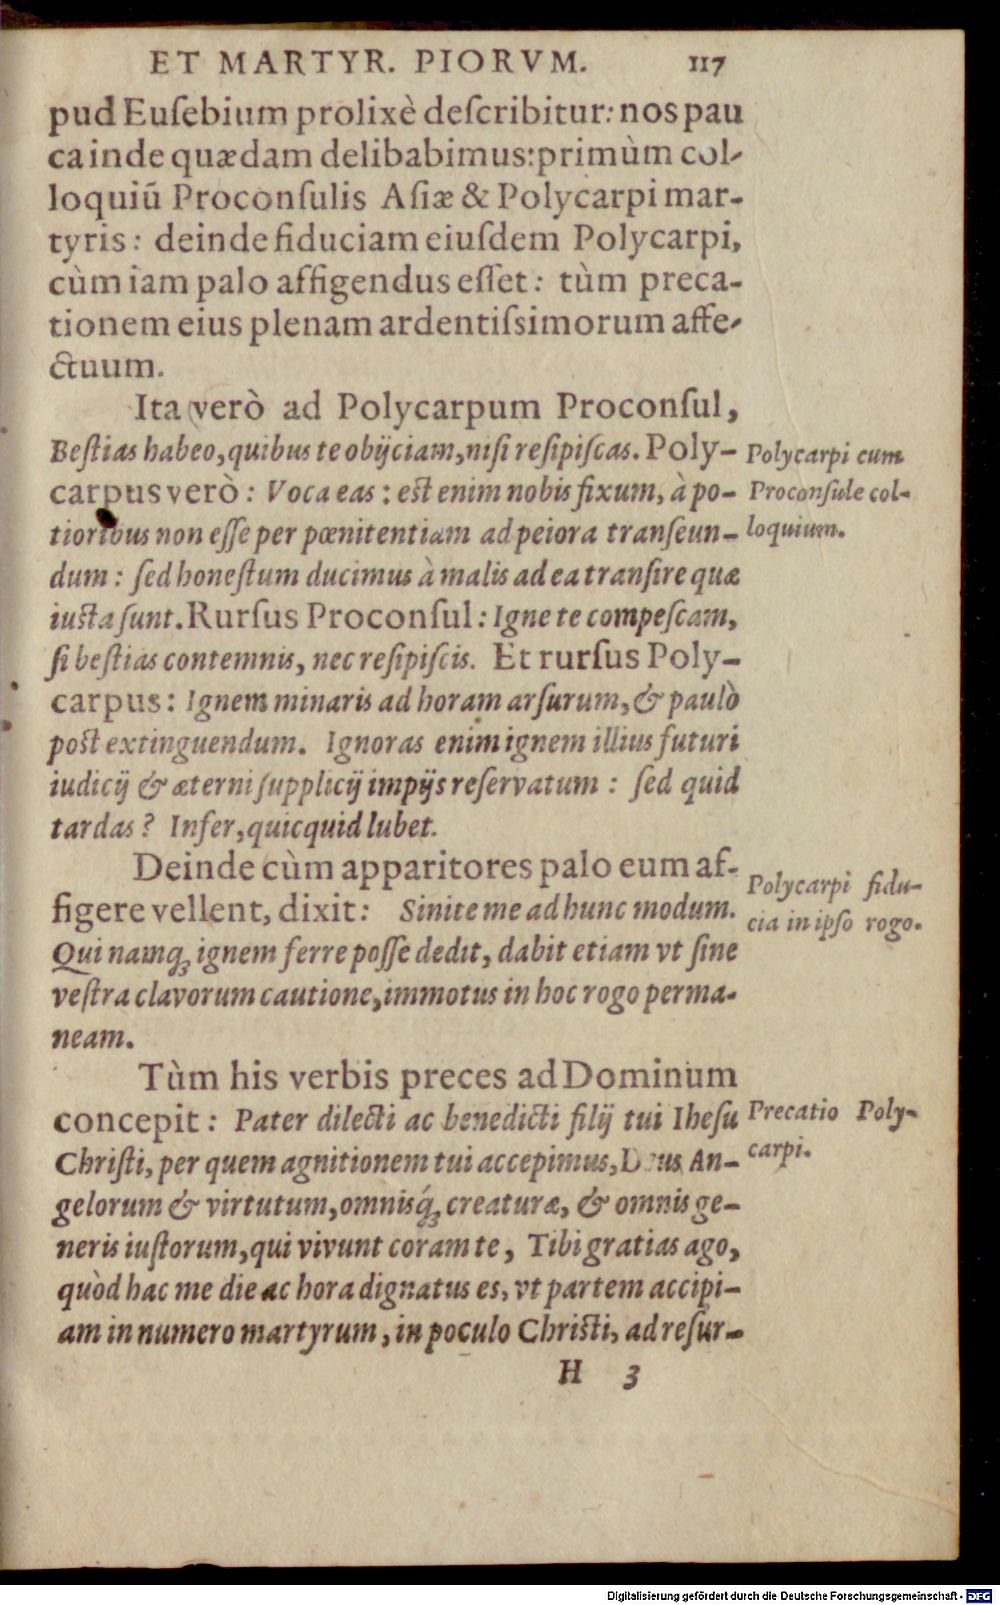 ET MARTYR. PIORVM. 117
pud Euſebium prolixè deſcribitur: nos pau
ca inde quædam delibabimus: primùm col-
loquiũ Proconſulis Aſiæ & Polycarpi mar-
tyris: deinde fiduciam eiuſdem Polycarpi,
cùm iam palo affigendus eſſet: tùm preca-
tionem eius plenam ardentiſsimorum affe-
ctuum.
Ita verò ad Polycarpum Proconſul,
Beſtias habeo, quibus te obijciam, niſi reſipiſcas. Poly-
carpus verò: Voca eas: eſt enim nobis fixum, à po-
tioribus non eſſe per pœnitentiam ad peiora tranſeun-
dum: ſed honeſtum ducimus à malis ad ea tranſire quæ
iuſta ſunt. Rurſus Proconſul: Igne te compeſcam,
ſi beſtias contemnis, nec reſipiſcis. Et rurſus Poly-
carpus: Ignem minaris ad horam arſurum, & paulò
poſt extinguendum. Ignoras enim ignem illius futuri
iudicij & æterni ſupplicij impijs reſervatum: ſed quid
tardas? Infer, quicquid lubet.
Polycarpi cum
Proconſule col-
loquium.
Deinde cùm apparitores palo eum af-
figere vellent, dixit: Sinite me ad hunc modum.
Qui namq; ignem ferre poſſe dedit, dabit etiam vt ſine
veſtra clavorum cautione, immotus in hoc rogo perma-
neam.
Polycarpi fidu-
cia in ipſo rogo.
Tùm his verbis preces ad Dominum
concepit: Pater dilecti ac benedicti filij tui Iheſu
Chriſti, per quem agnitionem tui accepimus, Deus An-
gelorum & virtutum, omnisq́; creaturæ, & omnis ge-
neris iuſtorum, qui vivunt coram te, Tibi gratias ago,
quòd hac me die ac hora dignatus es, vt partem accipi-
am in numero martyrum, in poculo Chriſti, ad reſur-
Precatio Poly-
carpi.
H 3
Digitalisierung gefördert durch die Deutsche Forschungsgemeinschaft - DFG